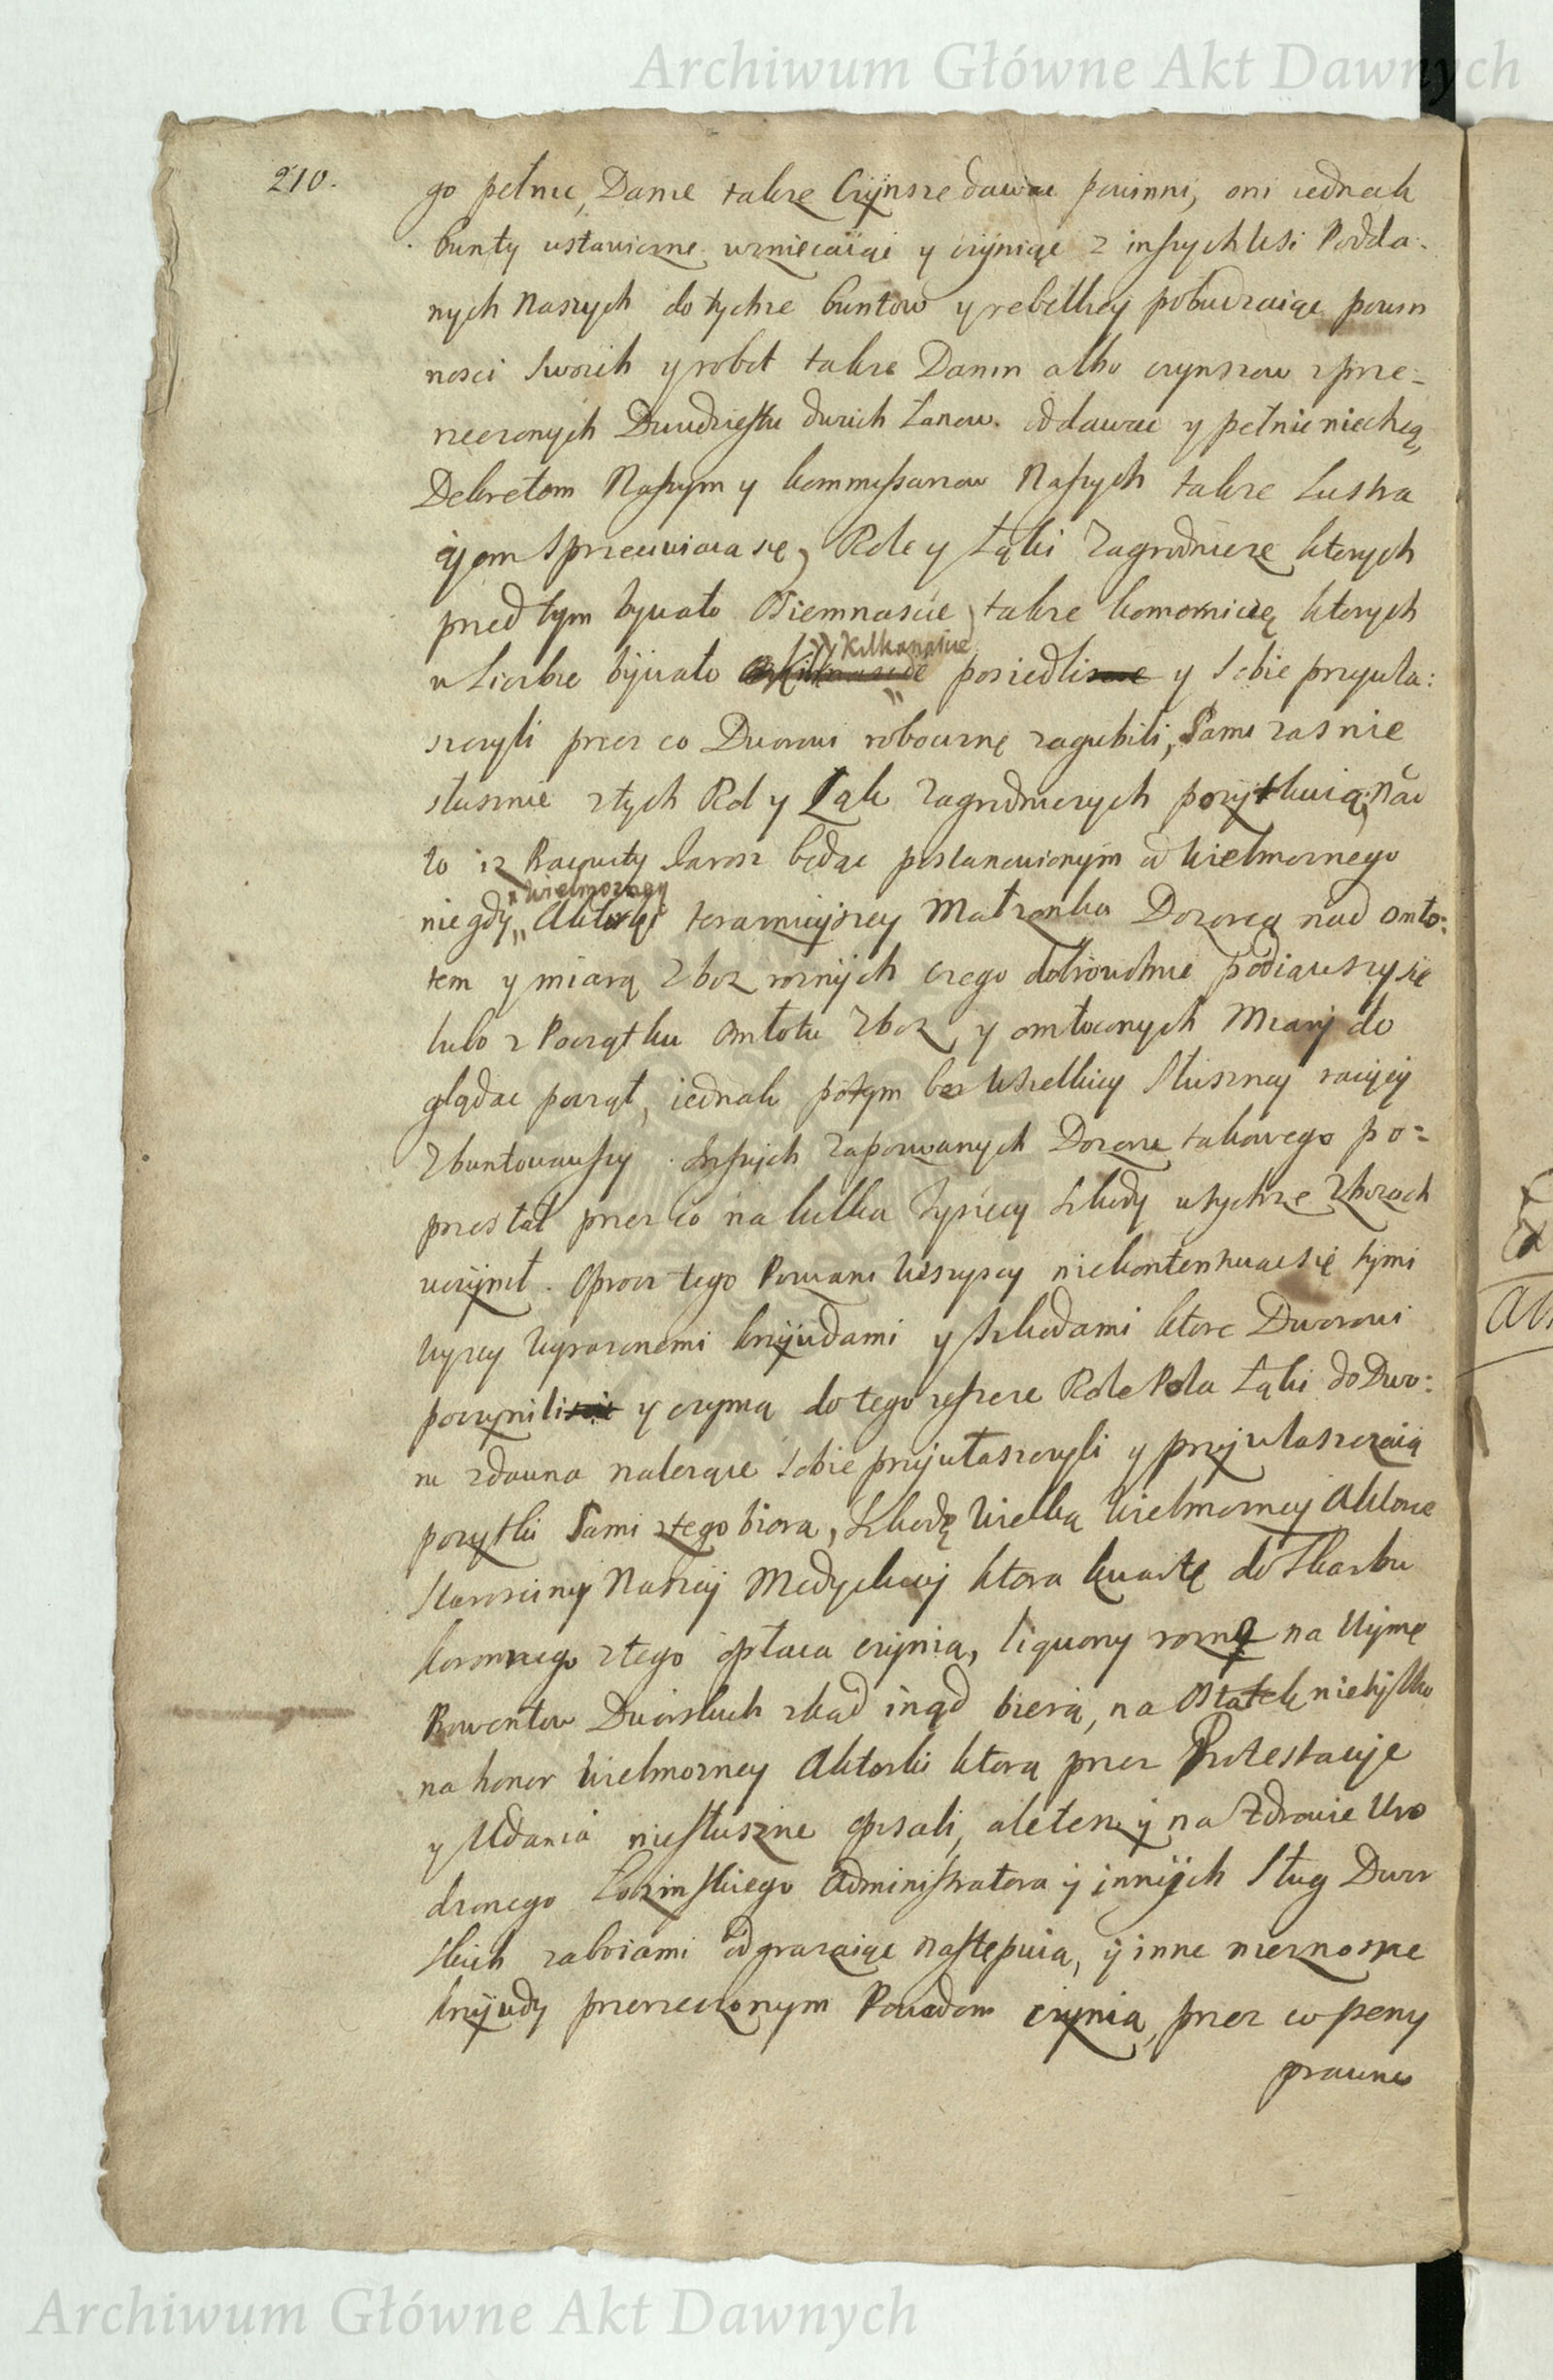 Archiwum Główne Akt Dawnych
210.
go pełnic, Danie takze Czynsze dawac powinni, oni iednak
bunty ustawiczne wzniecaiąc y czyniąc z inszych Wsi Podda-
nych Naszych do tychze buntow y rebelliey pobudzaiąc powin
nosci swoich y robot takze Danin albo czynszow z prze-
rzeczonych Dwudziestu dwuch Łanow oddawac y pełnic niechcą,
Dekretom Naszym y kommissarzow Naszych takze Lustra
cyom sprzeciwiaią się, Role y Łąki Zagrodnicze ktorych
przed tym bywało Osiemnascie, takze komornicze ktorych
w Liczbie bywało kilkanascie posiedli y sobie przywła:
szczyli przez co Dworowi robociznę zagubili, Sami zas nie
słusznie z tych Rol y Łąk Zagrodniczych pozytkuią, Nad
to iz Jarosz będąc postanowionym od Wielmoznego
niegdy Wielmozney Aktorki teraznieyszey Małzonka Dozorcą nad omło:
tem y miarą Zboz roznych czego dobrowolnie podiąwszy się
lubo z Początku omłotu Zboz y omłoconych Miary do
glądac począł, iednak potym bez Wszelkiey Słuszney racyey
Zbuntowawszy Inszych Zapozwanych Dozoru takowego po=
przestał przez co na kilka Tysięcy szkody w tychze Zbozach
uczynił. Oprocz tego Pozwani Wszyscy niekontentuiąc się tymi
wyzey wyrazonemi krzywdami y szkodami ktore Dworowi
poczynili y czynią do tego ieszcze Role Pola Łąki do Dwo:
ru zdawna nalezące sobie przywłaszczyli y przywłaszczaią
pozytki Sami z tego biorą, szkodę Wielką Wielmozney Aktorce
Starosciny Naszey Medyckiey ktora kwartę do Skarbu
koronnego z tego opłaca czynią, liquory rozne na Uymę
Prowentow Dworskich zkąd inąd biorą, na Ostatek nietylko
na honor Wielmozney Aktorki ktorą przez Protestacye
y Udania niesłuszne opisali, ale tesz y na Zdrowie Uro
dzonego Łozinskiego Administratora y innych Sług Dwor
skich zaboiami odgrazaiąc następuią, y inne nieznosne
krzywdy przerzeczonym Powodom czynią, przez co peny
prawne
Archiwum Główne Akt Dawnych